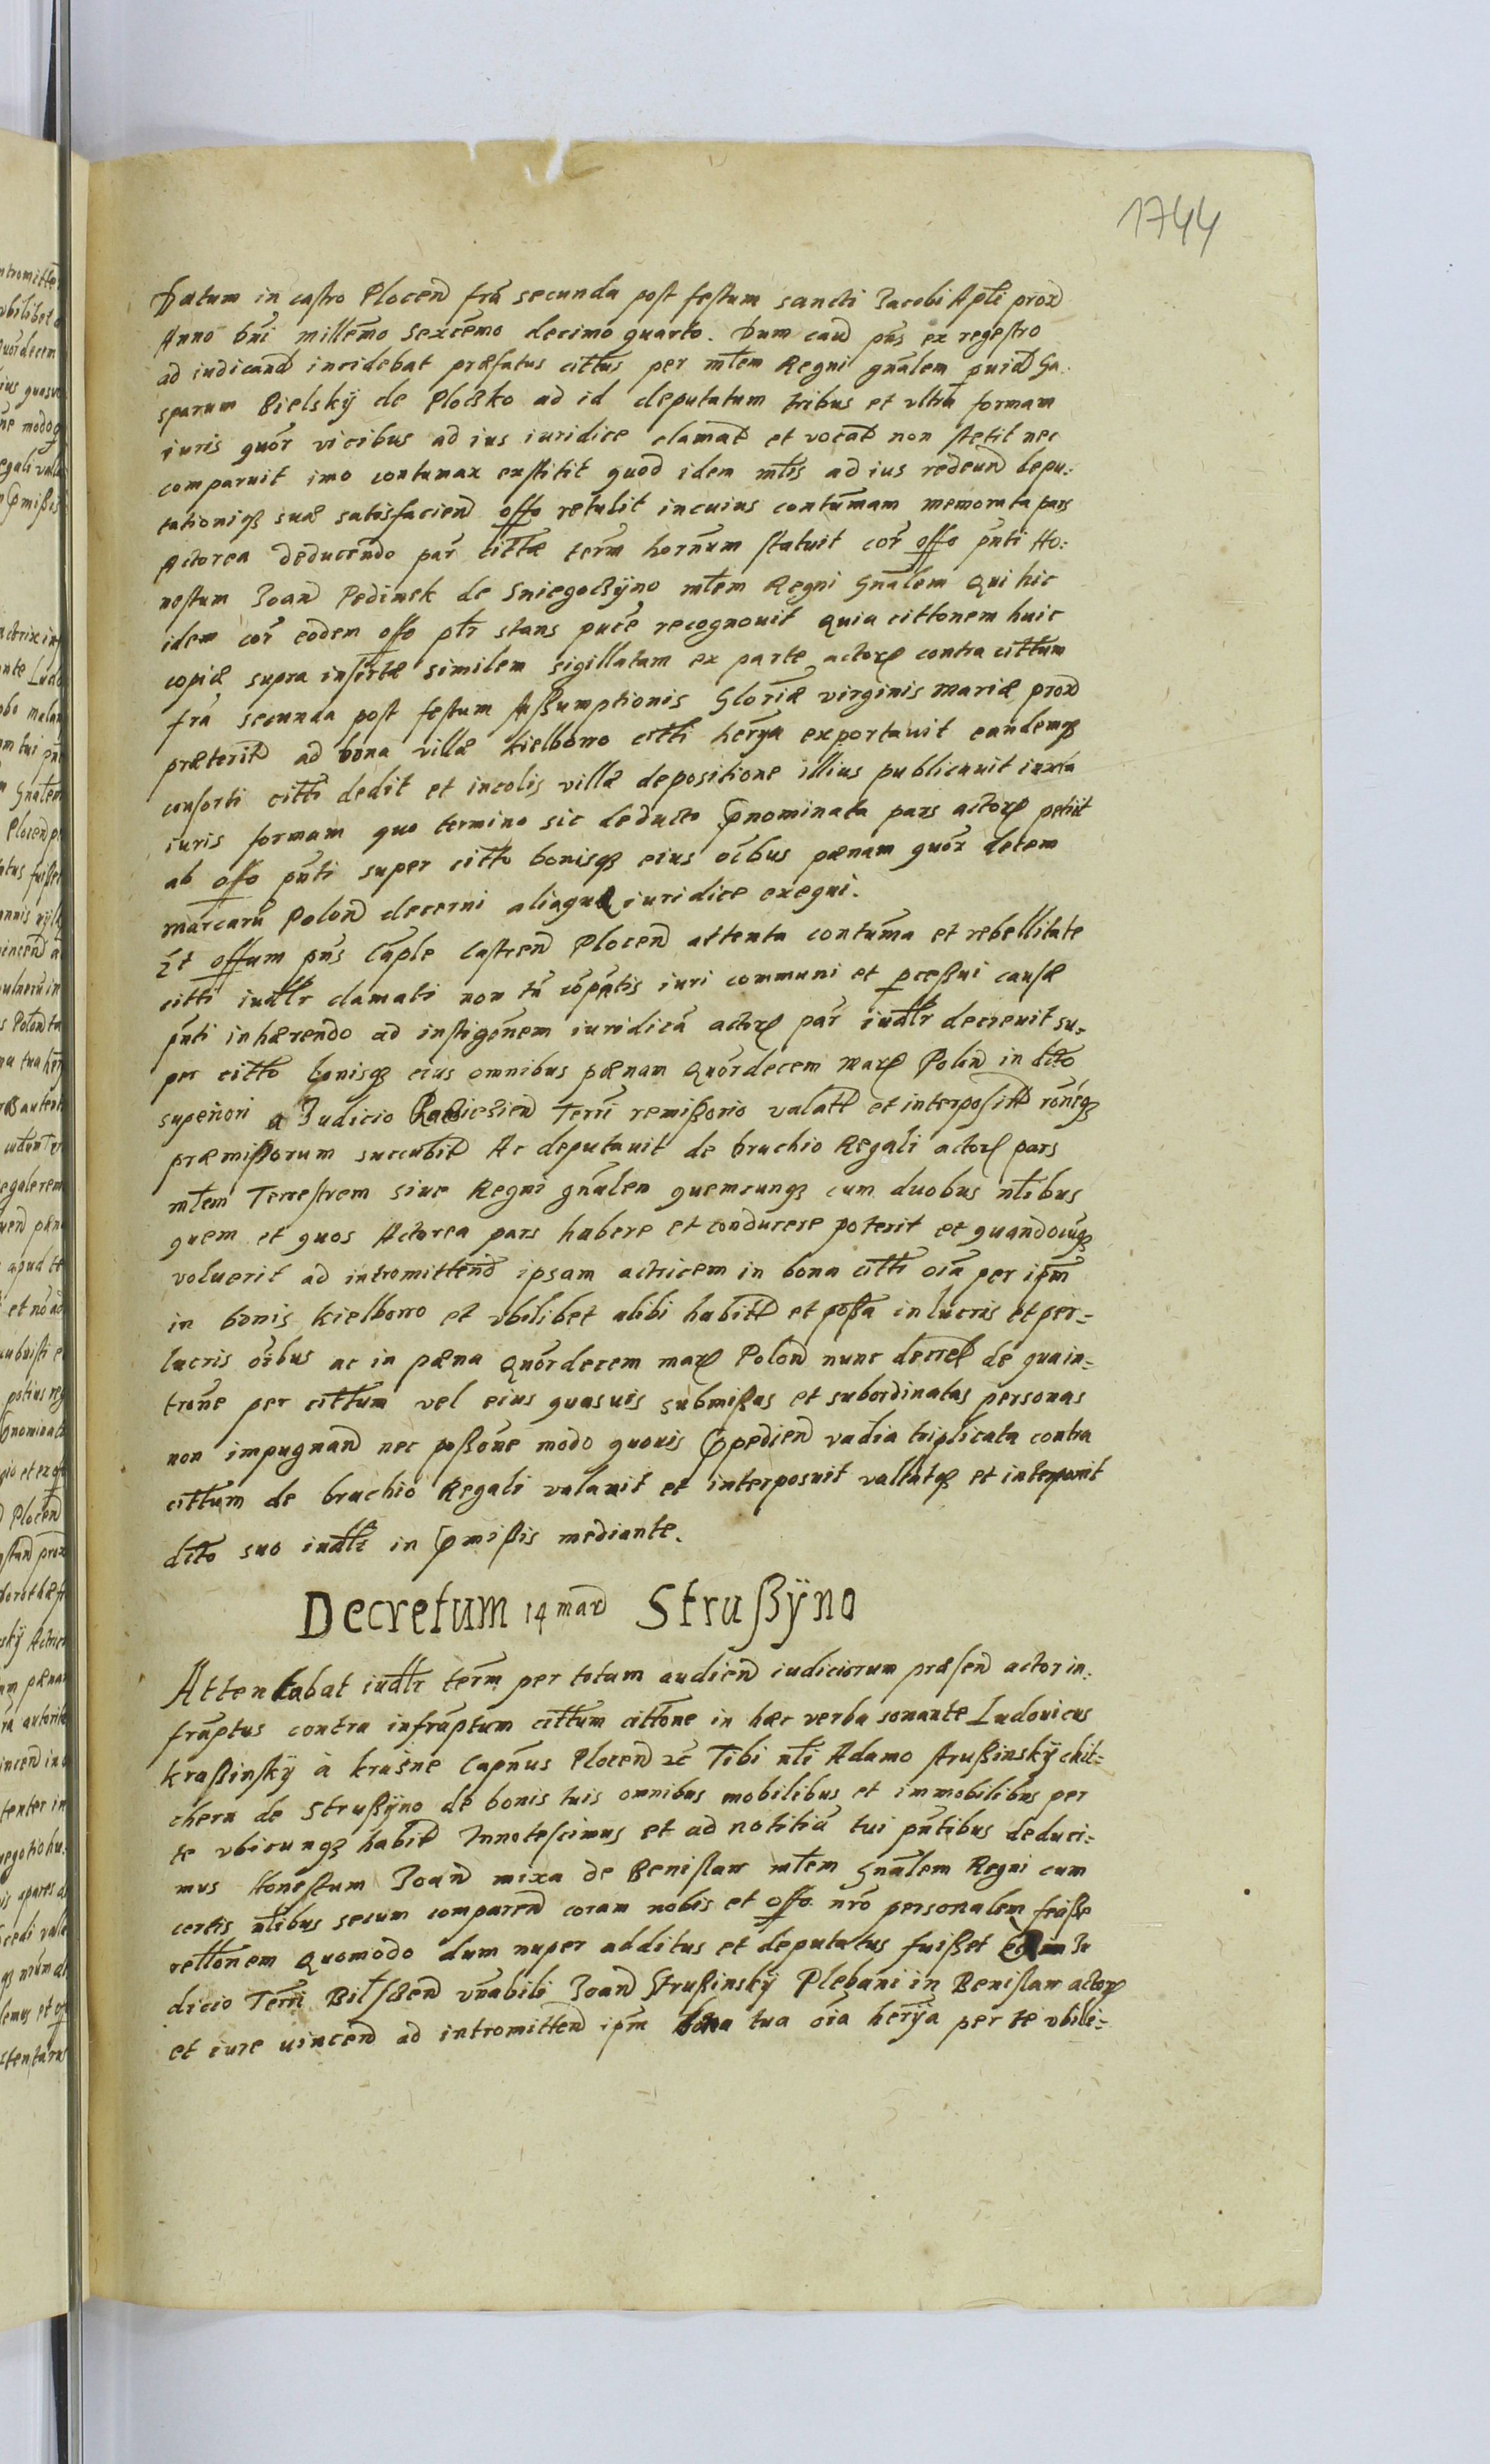 1744
Datum in castro Plocen fra secunda post festum sancti Jacobi Apli prox
Anno Dni millemo Sexcemo decimo quarto. Dum caus pns ex regestro
ad iudicand incidebat præfatus cittus per mlem Regni gnalem puid Ga-
sparum Bielsky de Plocsko ad id deputatum tribus et vltra formam
iuris quor vicibus ad ius iuridice clamat et vocat non stetit nec
comparuit imo contumax exstitit quod idem mlis ad ius redeund depu-
tationiq suæ satisfaciend offo retulit incuius contumam memorata pars
Actorea deducendo par cittæ term hornum statuit cor offo pnti Ho-
nestum Joan Pedinek de Sniegoczyno mlem Regni Gnalem Qui hic
idem cor eodem offo plr stans puce recognouit Quia cittonem huic
copiæ supra insertæ similem sigillatam ex parte actorx contra cittum
fra secunda post festum Assumptionis Gloriæ virginis Mariæ prox
præterit ad bona villæ kielbowo citti herya exportauit eandemq
consorti citti dedit et incolis villæ depositione illius publicauit iuxta
iuris formam quo termino sic deducto pnominata pars actorx petiit
ab offo pnti super citto bonisq eius oibus pænam quor decem
marcaru Polon decerni aliaque iuridice exequi.
Et offum pns Caple Castren Plocen attenta contuma et rebellitate
citti iudlr clamati non tn copatis iuri communi et pcessui causæ
pnti inhærendo ad instigonem iuridica actorx par iudlr decreuit su-
per citto bonisq eius omnibus pænam Quordecem Marx Polon in dcto
superiori a Judicio Raciczien Terri remissorio valatt et interpositt roneq
præmissorum succubit Ac deputauit de brachio Regali actorx pars
mlem Terrestrem siue Regni gnalem quemcunq cum duobus nlibus
quem et quos Actorea pars habere et conducere poterit et quandocuq
voluerit ad intromittend ipsam actricem in bona citti oia per ipm
in bonis kielbowo et vbilibet alibi habitt et possa in lucris et per-
lucris oibus ac in pæna Quordecem marx Polon nunc decret de qua in-
trone per cittum vel eius quasuis submissas et subordinatas personas
non impugnand nec possone modo quouis pedien vadia triplicata contra
cittum de brachio Regali valauit et interposuit vallatq et interponit
dcto suo iudli in pmissis mediante.
Decretum 14 mar Strussyno
Attentabat iudlr term per totam audien iudiciorum præsen actor in-
fraptus contra infraptum cittum cittone in hæc verba sonante Ludouicus
krassinsky à krasne Capnus Plocen &c Tibi nli Adamo strussinsky chil-
chera de Strussyno de bonis tuis omnibus mobilibus et immobilibus per
te vbicunq habit Innotescimus et ad notitia tui pntibus deduci-
mus Honestum Joan mixa de Benislaw mlem Gnalem Regni cum
certis nlibus secum comparen coram nobis et offo nro personalem fcisse
rellonem Quomodo dum nuper additus et deputatus fuisset in Ju
dicio Terri Bilscen vnabili Joan Strussinsky Plebani in Benislaw actorx
et iure uincen ad intromittend ipm bona tua oia herya per te vbili-